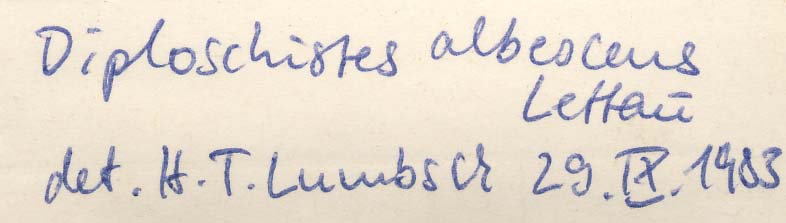 Diploschistes albescens
Lettau
det. H.T. Lumbsch 29.IX.1983